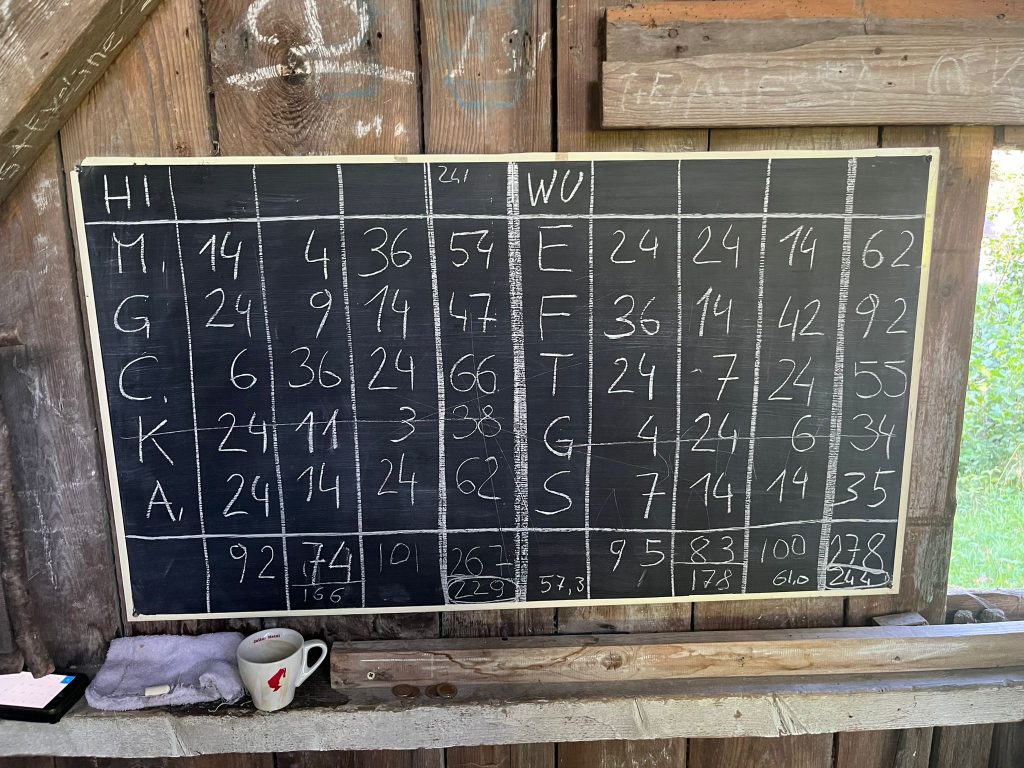 HI 241 WU
M. 14 4 36 54 E 24 24 14 62
G 24 9 14 47 F 36 14 42 92
C. 6 36 24 66 T 24 7 24 55
K 24 11 3 38 G 4 24 6 34
A. 24 14 24 62 S 7 14 14 35
92 74 101 267 95 83 100 278
166 229 57,3 178 61,0 244
Julius Meinl